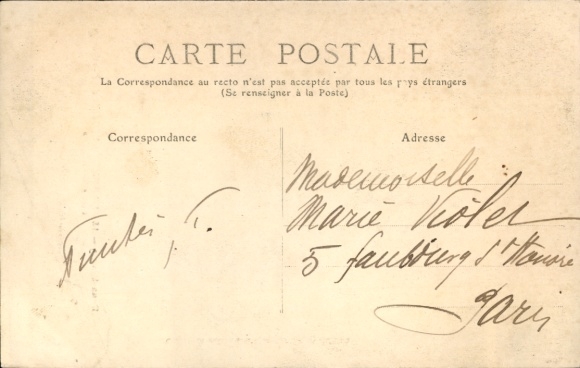 CARTE POSTALE
La Correspondance au recto n'est pas acceptée par tous les pays étrangers
(Se renseigner à la Poste)
Correspondance
Adresse
Mademoiselle
Marie Violet
5 faubourg St Honoré
Paris